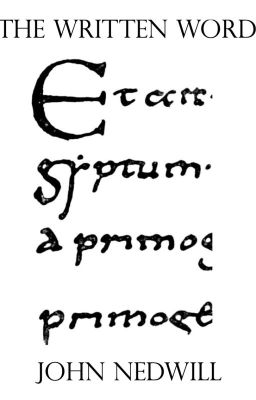 THE WRITTEN WORD
Et
gyptum·
a primog
primoge
JOHN NEDWILL